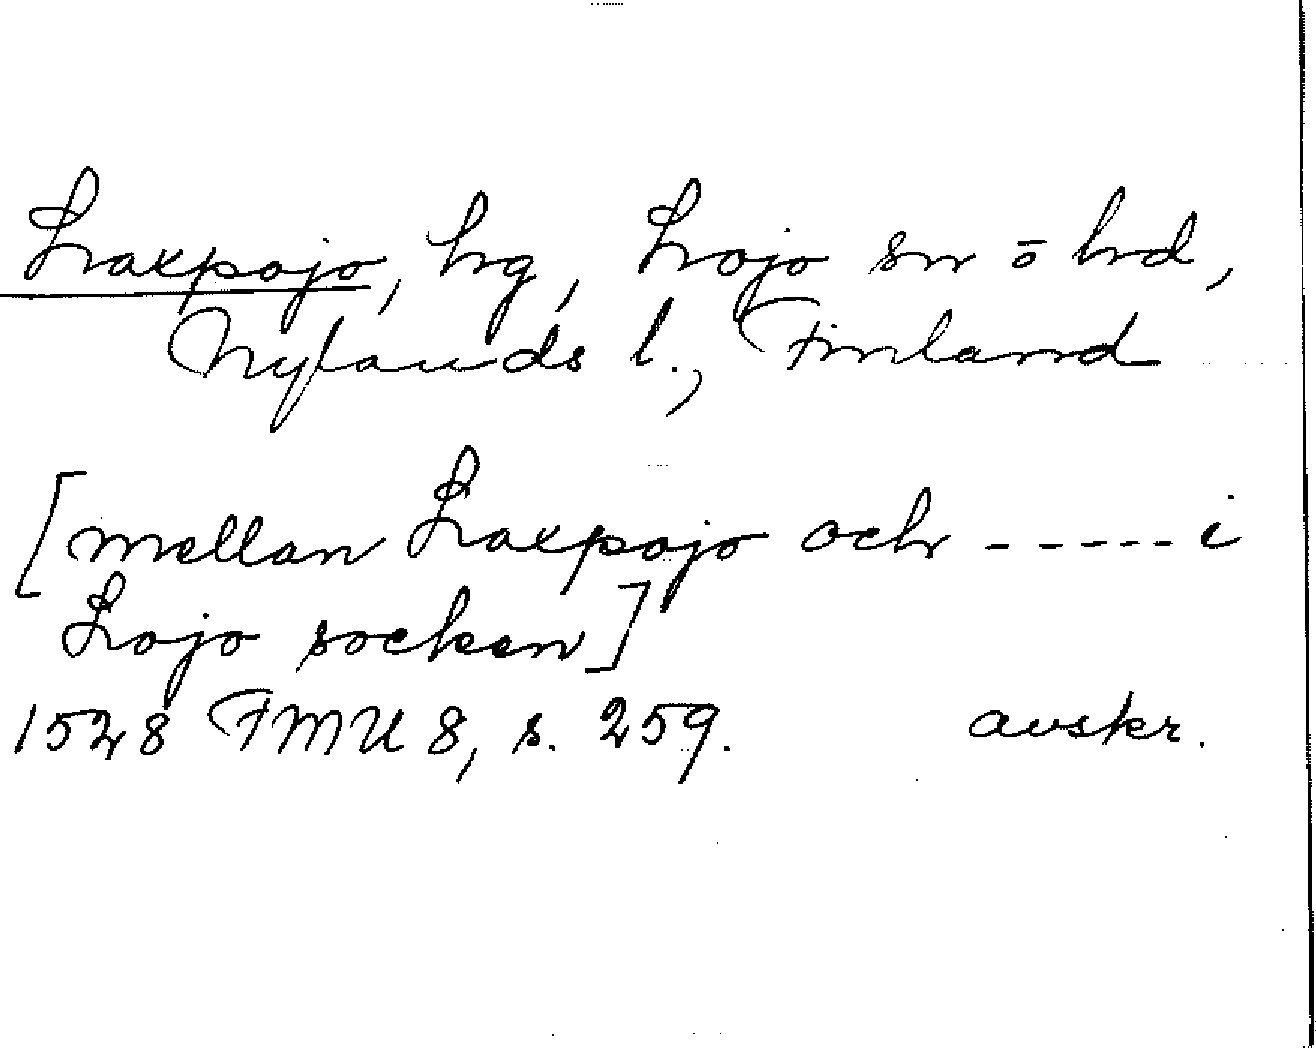 Laxpojo, hg, Lojo sn o hd,
Nylands l., Finland
[mellan Laxpojo och ----- i
Lojo socken]
1528 FMU 8, s. 259. avskr.